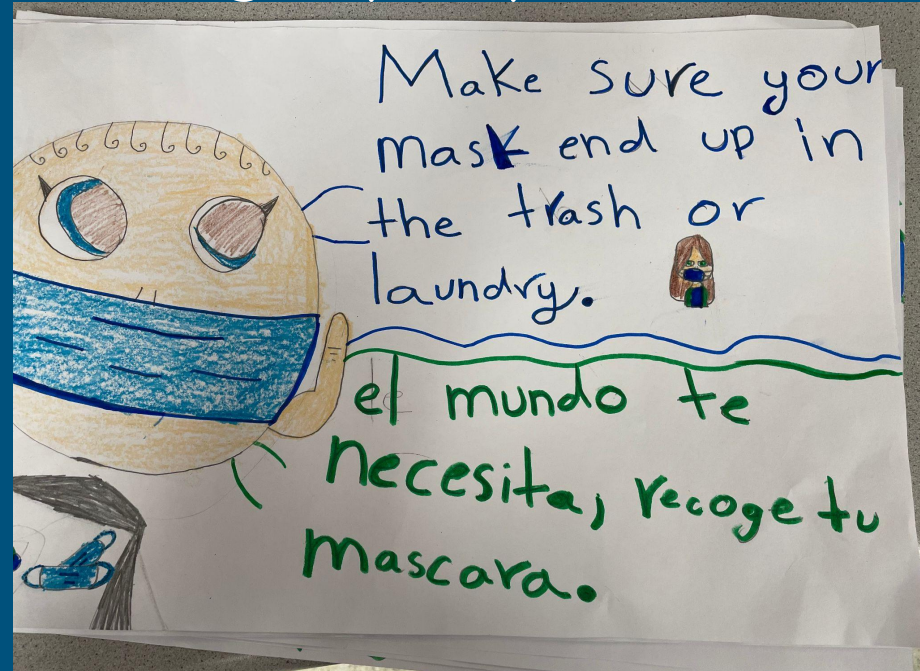 Make sure your
mask end up in
the trash or
laundry.
el mundo te
necesita, recoge tu
mascara.